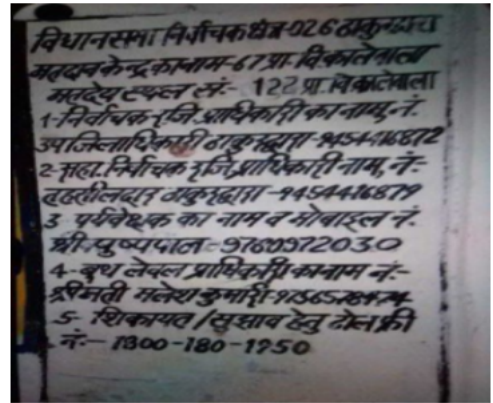 विधानसभा निर्वाचक क्षेत्र-026 ठाकुरद्वारा
मतदान केन्द्र का नाम-67 प्रा. वि. कालेवाला
मतदेय स्थल सं:- 122 प्रा. वि. कालेवाला
1-निर्वाचक रजि. प्राधिकारी का नाम, नं.
उपजिलाधिकारी ठाकुरद्वारा-9454416872
2-सहा. निर्वाचक रजि. प्राधिकारी नाम, नं:-
तहसीलदार ठाकुरद्वारा-9454416879
3 पर्यवेक्षक का नाम व मोबाइल नं.
श्री पुष्पपाल-9760972030
4-बूथ लेवल प्राधिकारी का नाम नं:-
श्रीमती मलेश कुमारी-
5- शिकायत/सुझाव हेतु टोल फ्री
नं:- 1800-180-1950